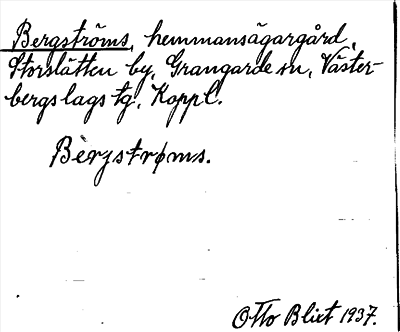 Bergströms, hemmansägargård,
Storslätten by, Grangärde sn, Väster-
bergslags tg, Koppl.
Bèrjstrøms.
Otto Blixt 1937.